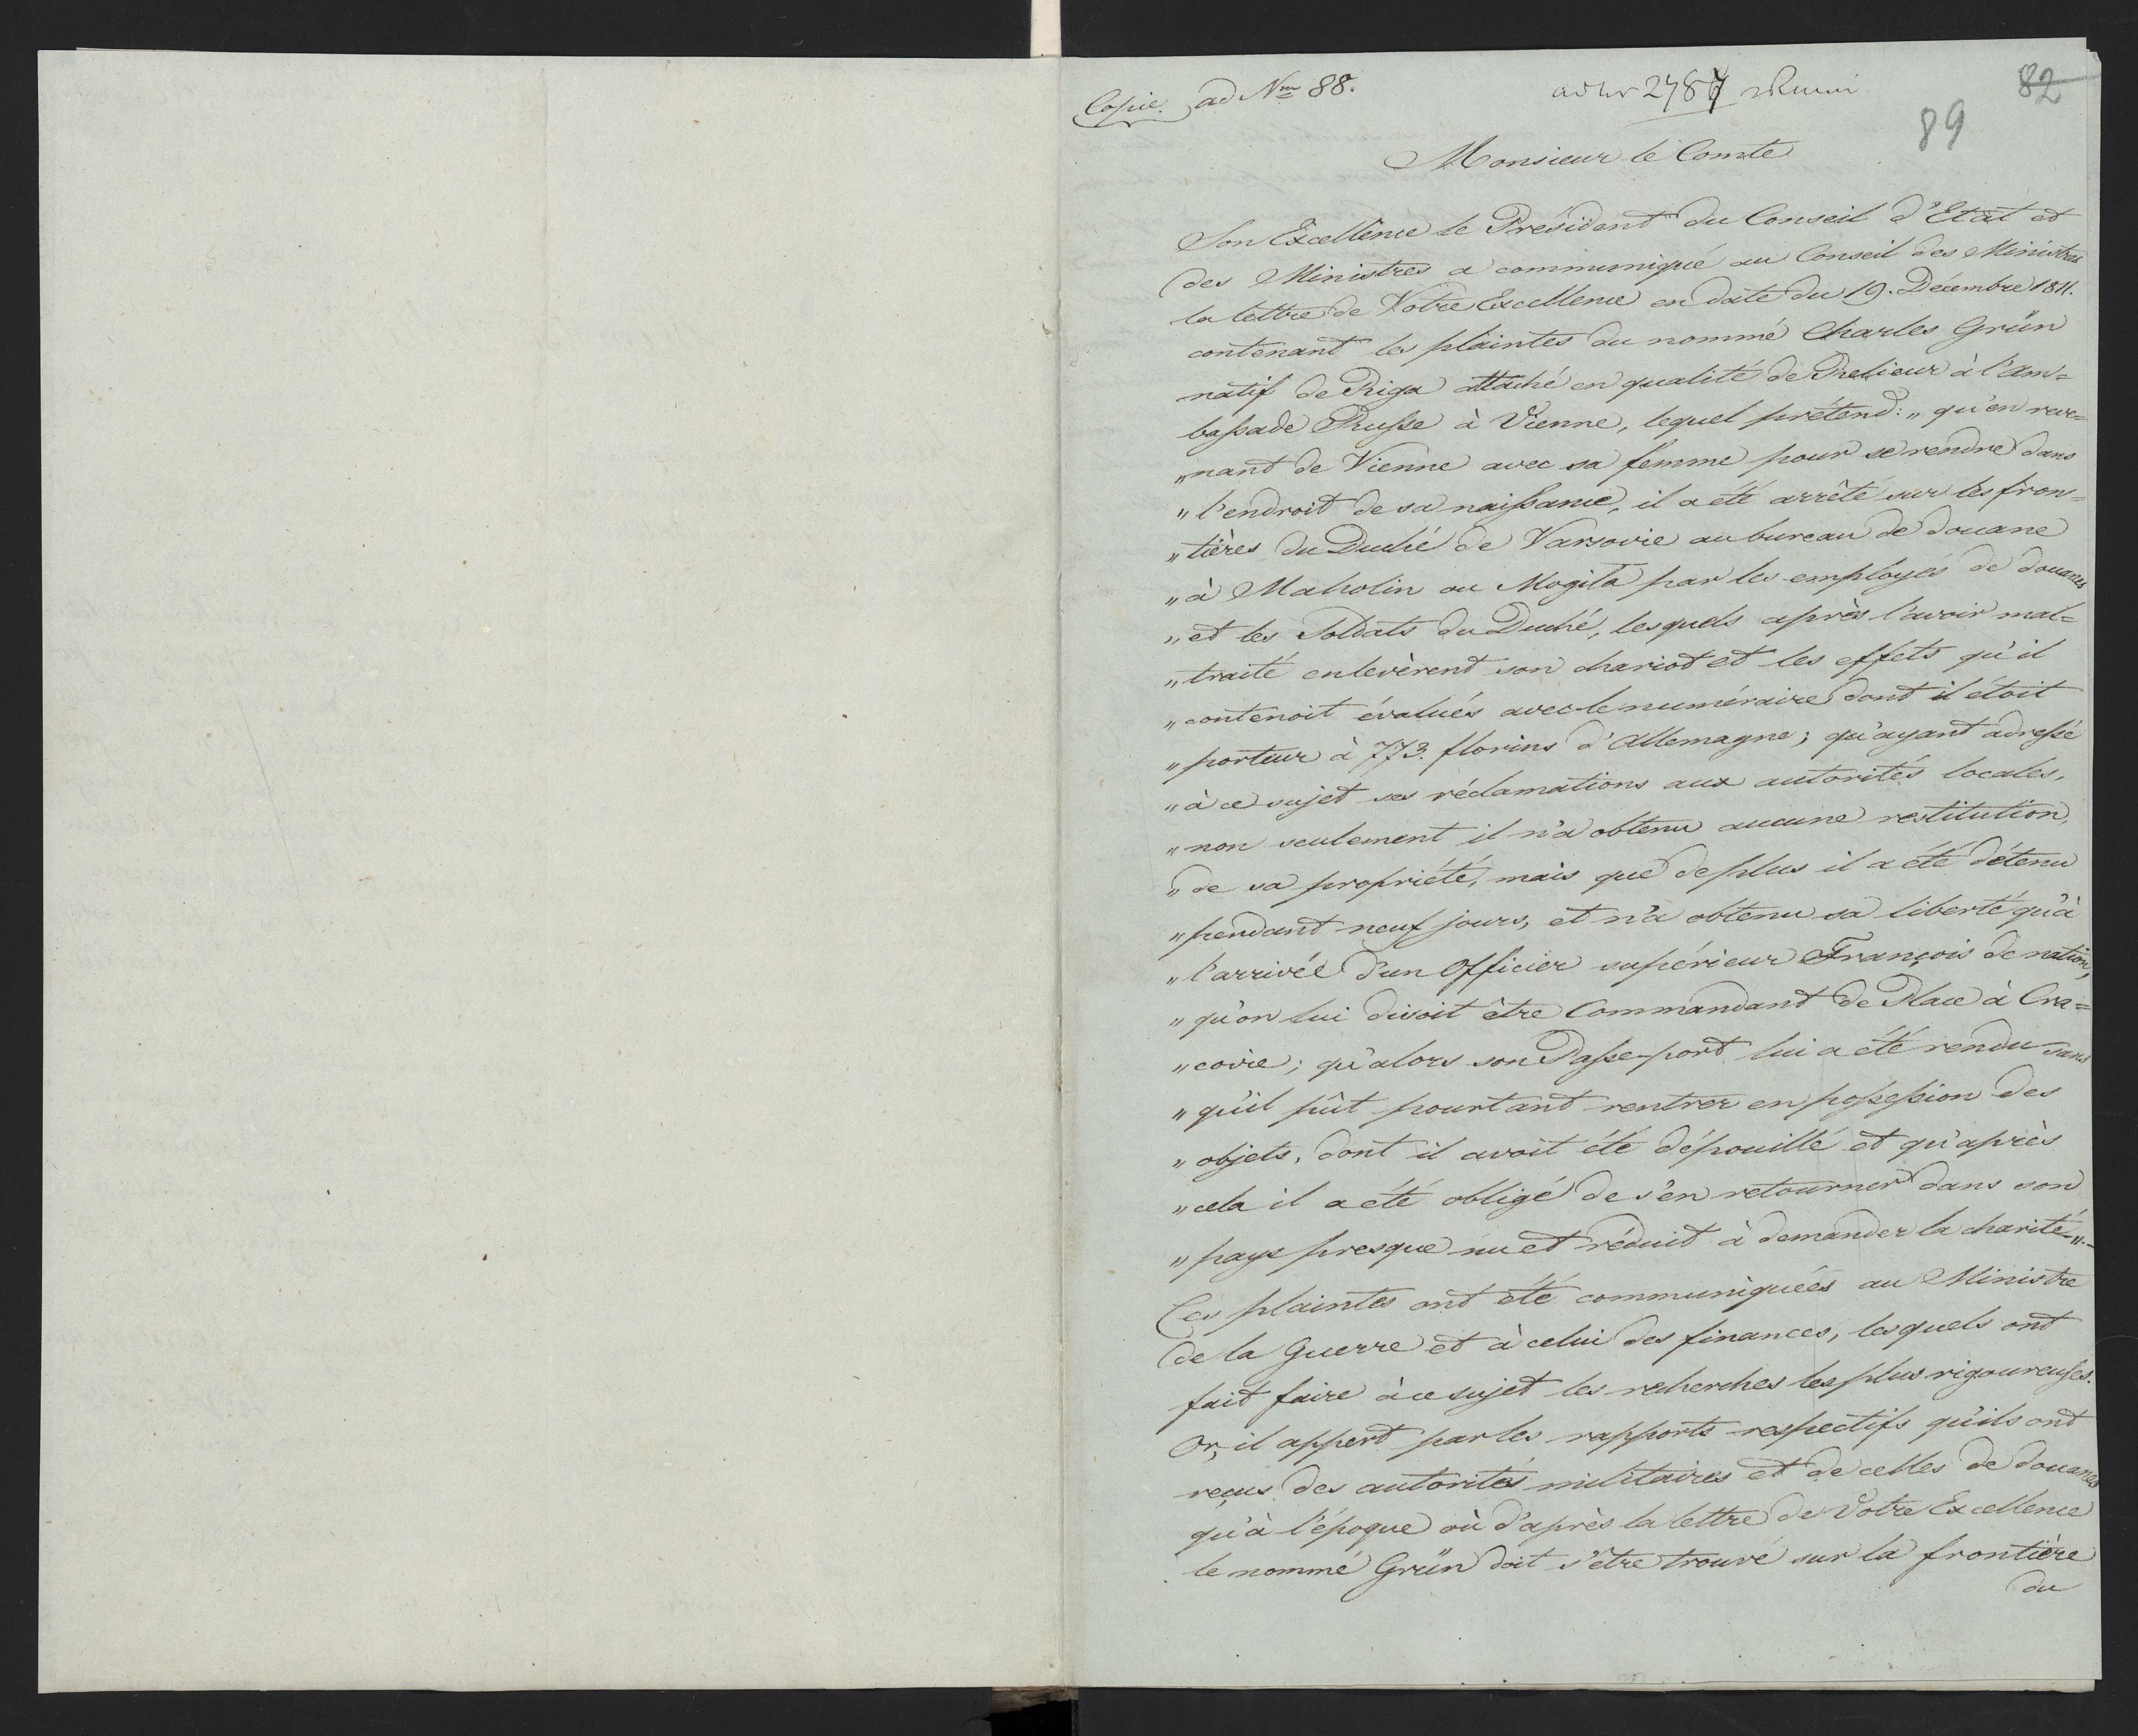 Copie. ad Nrm 88.
ad Nr 2787
82
89
Monsieur le Comte
Son Excellence le Président du Conseil d'Etat et
des Ministres a communiqué au Conseil des Ministres
la lettre de Votre Excellence en date du 19. Décembre 1811.
contenant les plaintes du nommé Charles Grün
natif de Riga attaché en qualité de Relieur à l'am=
bassade Russe à Vienne, lequel prétend: „ qu'en reve=
„nant de Vienne avec sa femme pour se rendre dans
„l'endroit de sa naissance, il a été arrêté sur les fron=
„tières du Duché de Varsovie au bureau de douane
„à Maholin ou Mogiła par les employés de douanes
„et les Soldats du Duché, lesquels après l'avoir mal=
„traité enlevèrent son chariot et les effets qu'il
„contenoit évalués avec le numéraire dont il étoit
„porteur à 773. florins d'Allemagne; qu'ayant adressé
„à ce sujet ses réclamations aux autorités locales,
„non seulement il n'a obtenu aucune restitution,
„de sa propriété, mais que de plus il a été détenu
„pendant neuf jours, et n'a obtenu sa liberté qu'à
„l'arrivée d'un Officier supérieur François de nation,
„qu'on lui disoit être Commandant de Place à Cra=
„covie; qu'alors son Passe-port lui a été rendu sans
„qu'il pût pourtant rentrer en possession des
„objets, dont il avoit été dépouillé et qu'après
„cela il a été obligé de s'en retourner dans son
„pays presque nu et réduit à demander la charité„.-
Ces plaintes ont été communiquées au Ministre
de la Guerre et à celui des finances, lesquels ont
fait faire à ce sujet les recherches les plus rigoureuses.
Or, il appert par les rapports respectifs qu'ils ont
reçus des autorités militaires et de celles de douanes
qu'à l'époque où d'après la lettre de Votre Excellence
le nommé Grün doit s'être trouvé sur la frontière
du